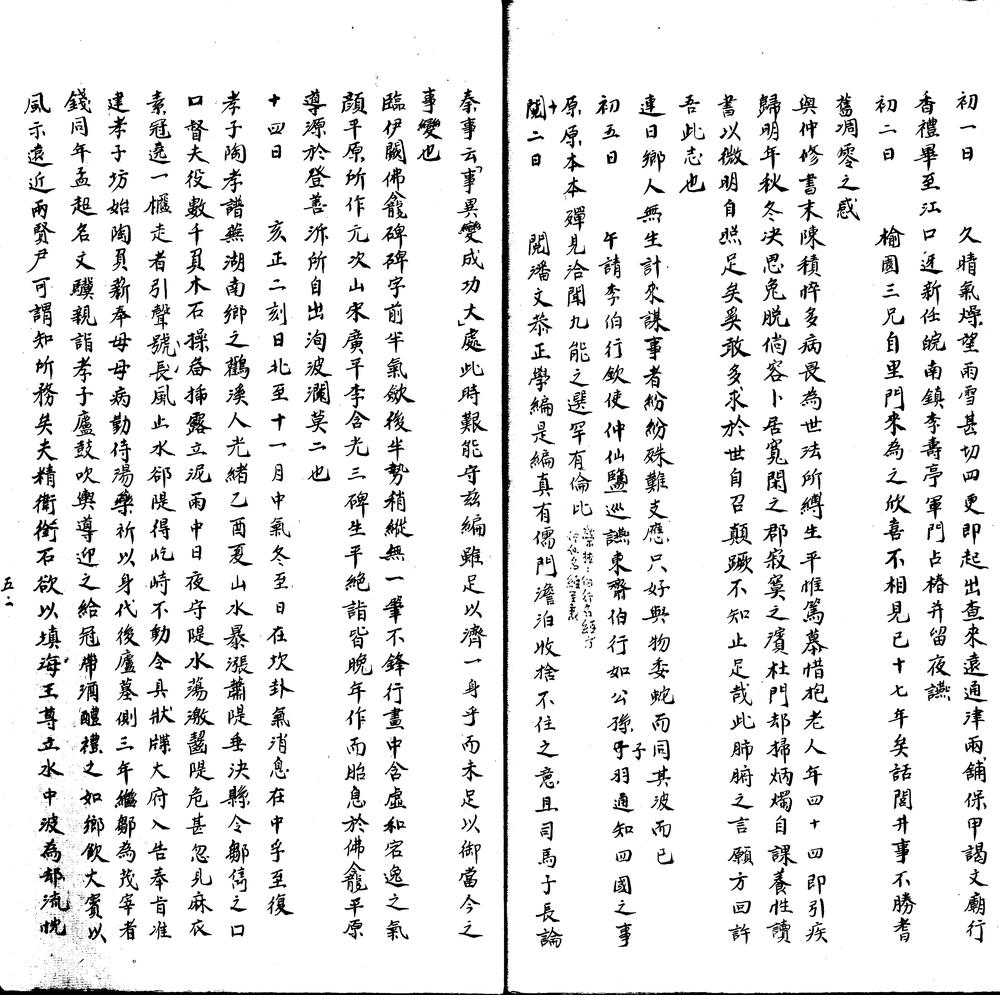 初一日　久晴氣燥望雨雪甚切四更即起出查來遠通津兩舖保甲謁文廟行
香禮畢至江口迓新任皖南鎮李壽亭軍門占椿并留夜讌
初二日　榆園三兄自里門來為之欣喜不相見已十七年矣話閭井事不勝耆
舊凋零之感
與仲修書末陳積悴多病畏為世法所縛生平惟篤慕惜抱老人年四十四即引疾
歸明年秋冬決思兔脫倘容卜居寬閑之郡寂寞之濱杜門却掃炳燭自課養性讀
書以微明自照足矣奚敢多求於世自召顛蹶不知止足哉此肺腑之言願方回許
吾此志也
連日鄉人無生計來謀事者紛紛殊難支應只好與物委蛇而同其波而已
初五日　午請李伯行欽使仲仙鹽巡讌東齋伯行如公孫子羽通知四國之事
原原本本殫見洽聞九能之選罕有倫比
十二日　閱潘文恭正學編是編真有儒門澹泊收拾不住之意且司馬子長論
秦事云「事異變成功大」處此時艱能守茲編雖足以濟一身乎而未足以御當今之
事變也
臨伊闕佛龕碑碑字前半氣斂後半勢稍縱無一筆不鋒行畫中含虛和宕逸之氣
顏平原所作元次山宋廣平李含光三碑生平絕詣皆晚年作而胎息於佛龕平原
導源於登善泝所自出洵波瀾莫二也
十四日　亥正二刻日北至十一月中氣冬至日在坎卦氣消息在中孚至復
孝子陶孝譜蕪湖南鄉之鸛溪人光緒乙酉夏山水暴漲蕭隄垂決縣令鄒儁之口
口督夫役數千員木石操畚揷露立泥雨中日夜守隄水蕩激齧隄危甚忽見麻衣
素冠遶一櫬走者引聲號長風止水郤隄得屹峙不動令具狀牒大府入告奉旨准
建孝子坊始陶員薪奉母母病勤侍湯藥祈以身代後廬墓側三年繼鄒為茂宰者
錢同年孟起名文驥親詣孝子廬鼓吹輿導迎之給冠帶酒醴禮之如鄉飲大賓以
風示遠近兩賢尹可謂知所務矣夫精衛銜石欲以填海王尊立水中波為却流忱
五二